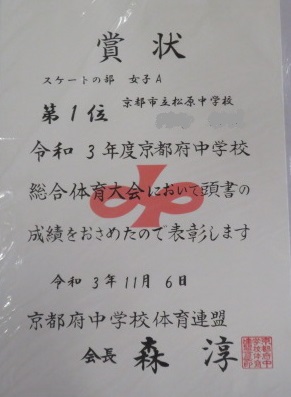 賞状
スケートの部 女子A
京都市立松原中学校
第1位
令和3年度京都府中学校
総合体育大会において頭書の
成績をおさめたので表彰します
令和3年11月6日
京都府中学校体育連盟
会長 森 淳